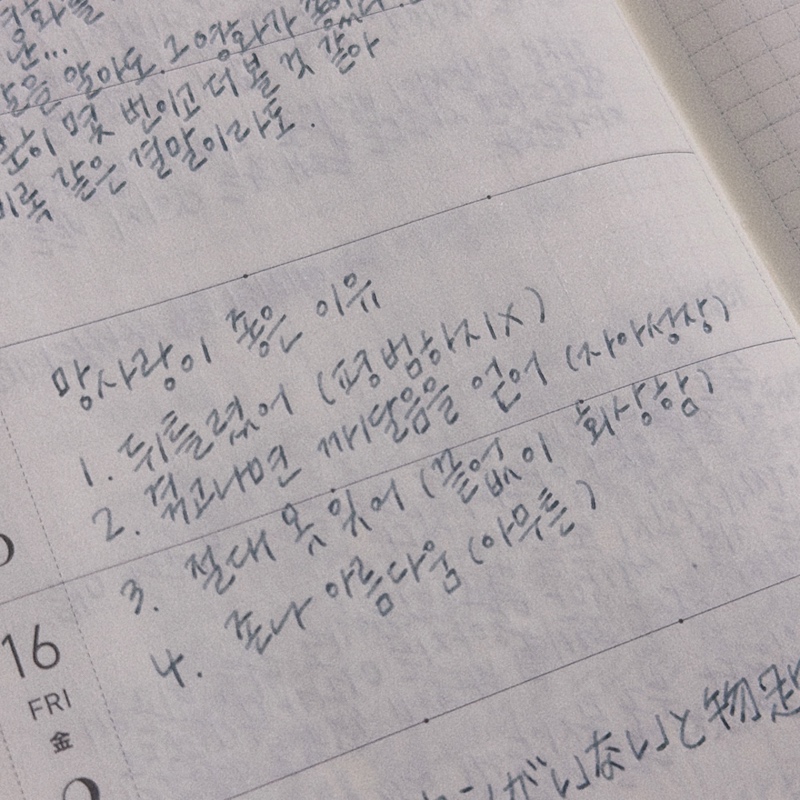 영화를
난...
날을 알아도 그 영화가 좋았다
몇 번이고 더 볼 것 같아
비록 같은 결말이라도.
망사랑이 좋은 이유
1. 뒤틀렸어 (평범하지X)
2. 겪고나면 깨달음을 얻어 (자아성장)
3. 절대 못 잊어 (끝없이 회상함)
4. 존나 아름다움 (아무튼)
16
FRI
金
がいないと物足